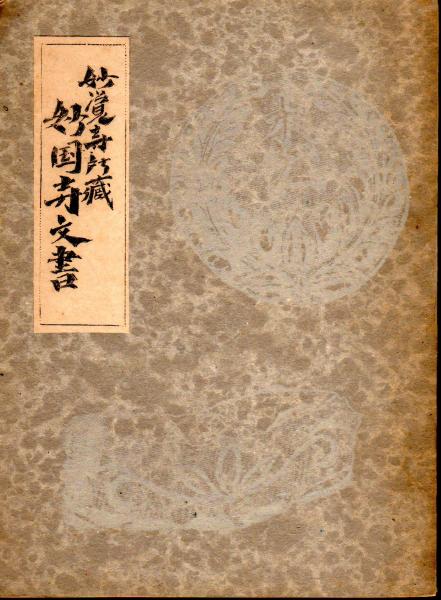 妙覚寺所蔵
妙国寺文書